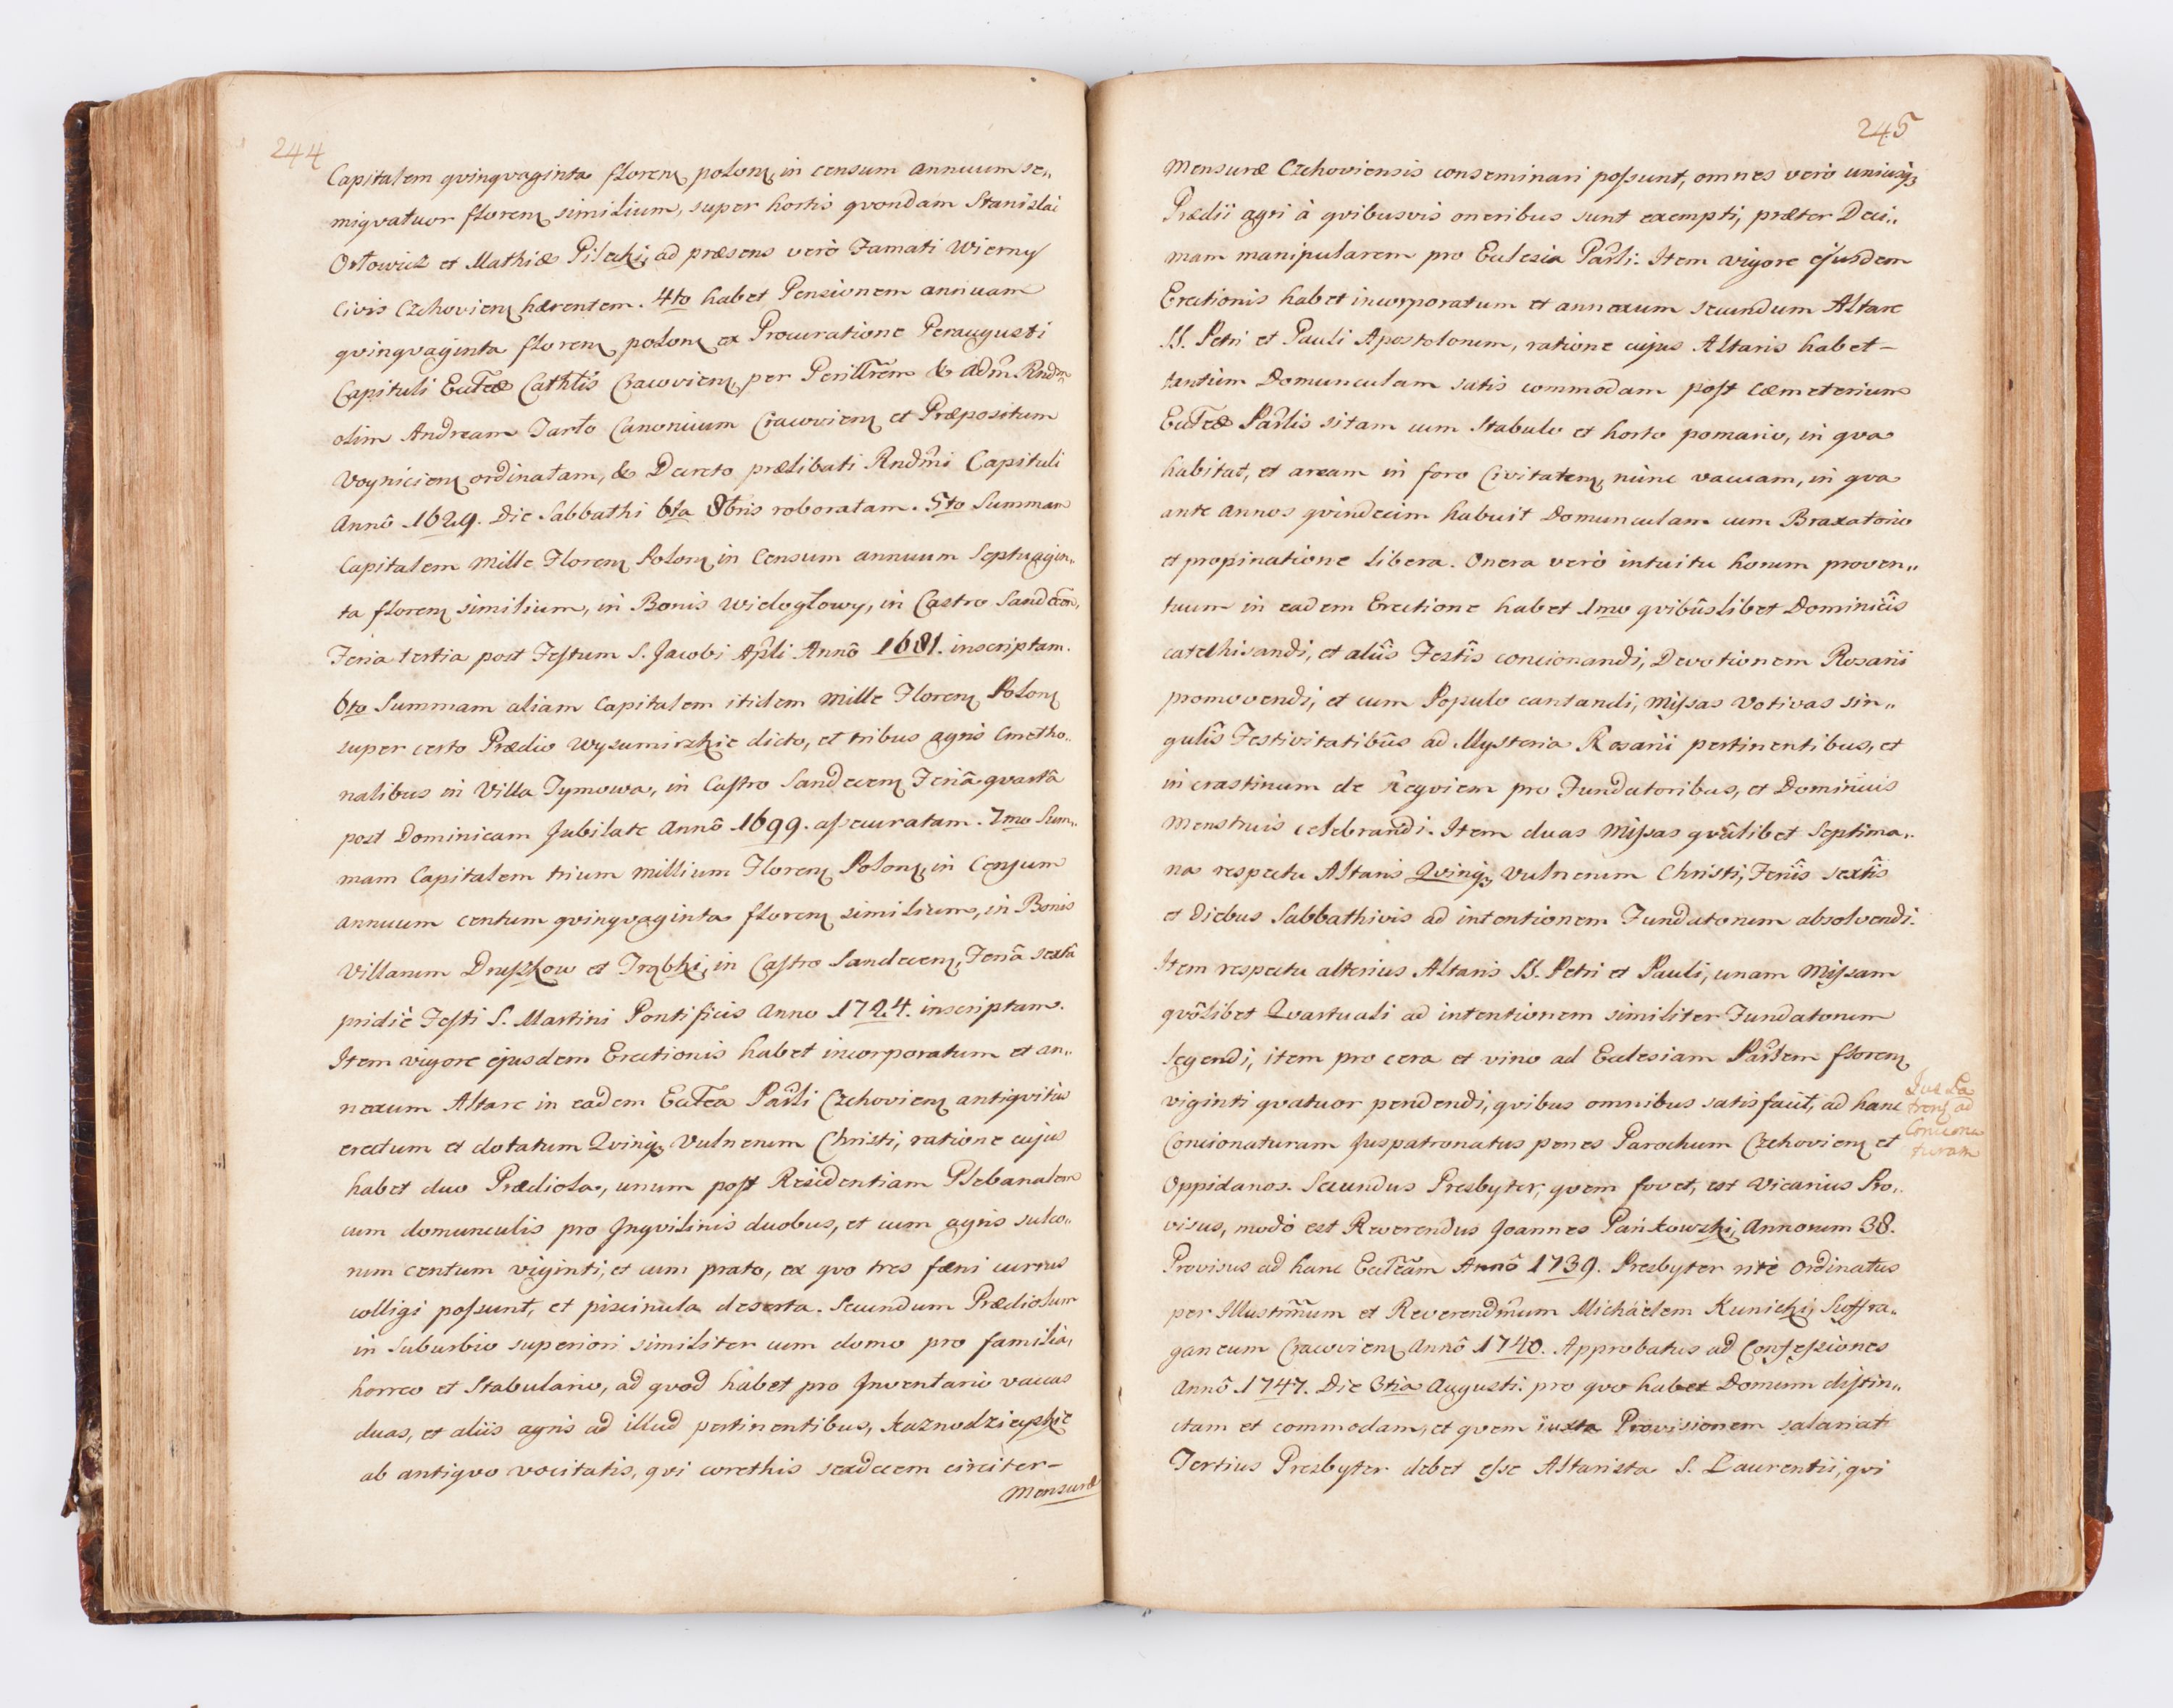 244
Capitalem qvinqvaginta floren polon, in censum annuum se„
miqvatuor floren similium, super hortis qvondam Stanislai
Orłowicz et Mathiæ Pilecki, ad præsens verò Famati Wierny
Civis Czchovien hærentem. 4to habet Pensionem annuam
qvinqvaginta floren polon ex Procuratione Peraugusti
Capituli Eccłæ Cathlis Cracovien, per Perillrem & adm. Rndm
olim Andream Tarło Canonicum Cracovien et Præpositum
Voynicien ordinatam, & Decreto prælibati Rndmi Capituli
Annô 1629. Die Sabbathi 6ta 8bris roboratam. 5to Summam
Capitalem Mille Floren Polon in Censum annuum Septuagin„
ta floren similium, in Bonis Wielogłowy, in Castro Sandecen,
Feria tertia post Festum S. Jacobi Apli Annô 1681. inscriptam.
6to Summam aliam Capitalem itidem Mille Floren Polon
super certo Prædio Wysumirskie dicto, et tribus agris Cmetho„
nalibus in Villa Tymowa, in Castro Sandecen Feriâ qvartâ
post Dominicam Jubilate Annô 1699. assecuratam. 7mo Sum„
mam Capitalem trium millium Floren Polon, in Censum
annuum centum qvinqvaginta floren similium, in Bonis
Villarum Druszkow et Trąbki, in Castro Sandecen, Feriâ sextâ
pridiè Festi S. Martini Pontificis Anno 1724. inscriptam.
Item vigore ejusdem Erectionis habet incorporatum et an„
nexum Altare in eadem Eccła Parli Czchovien antiqvitùs
erectum et dotatum Qvinq, Vulnerum Christi, ratione cujus
habet duo Prædiola, unum post Residentiam Plebanalem
cum domunculis pro Inqvilinis duobus, et cum agris sulco„
rum centum viginti, et cum prato, ex qvo tres fæni currus
colligi possunt, et piscinula deserta. Secundum Prædiolum
in Suburbio superiori similiter cum domo pro familia,
horreo et Stabulario, ad qvod habet pro Inventario vaccas
duas, et aliis agris ad illud pertinentibus, Kaznodzieyskie
ab antiqvo vocitatis, qvi corethis sexdecem circiter–
Mensuræ
245
Mensuræ Czchoviensis conseminari possunt, omnes verò uniusq,
Prædii agri à qvibusvis oneribus sunt exempti, præter Deci„
mam manipularem pro Ecclesia Parli. Item vigore ejusdem
Erectionis habet incorporatum et annexum secundum Altare
SS. Petri et Pauli Apostolorum, ratione cujus Altaris habet–
tantùm Domunculam satis commodam post Cæmeterium
Eccłæ Parlis sitam cum Stabulo et horto pomario, in qva
habitat, et aream in foro Civitaten, nunc vacuam, in qva
ante annos qvindecim habuit Domunculam cum Braxatorio
et propinatione libera. Onera verò intuitu horum proven„
tuum in eadem Erectione habet 1mo qvibûslibet Dominicîs
catechisandi, et aliîs Festîs concionandi, Devotionem Rosarii
promovendi, et cum Populo cantandi, Missas Votivas sin„
gulîs Festivitatibûs ad Mysteria Rosarii pertinentibus, et
in crastinum de Reqviem pro Fundatoribus, et Dominicis
Menstruis celebrandi. Item duas Missas qvâlibet Septima„
na respectu Altaris Qvinq, Vulnerum Christi, Feriîs sextîs
et Diebus Sabbathivis ad intentionem Fundatorum absolvendi.
Item respectu alterius Altaris SS. Petri et Pauli, unam Missam
qvôlibet Qvartuali ad intentionem similiter Fundatorum
legendi, item pro cera et vino ad Ecclesiam Parlem floren
viginti qvatuor pendendi, qvibus omnibus satisfacit, ad hanc
Concionaturam Juspatronatus penes Parochum Czchovien et
Oppidanos. Secundus Presbyter, qvem fovet, est Vicarius Pro„
visus, modò est Reverendus Joannes Pańkowski, Annorum 38.
Provisus ad hanc Eccłam Annô 1739. Presbyter ritè Ordinatus
per Illustrmum et Reverendmum Michäelem Kunicki, Suffra„
ganeum Cracovien Annô 1740. Approbatus ad Confessiones
Annô 1747. Die 3tia Augusti. pro qvo habet Domum distin„
ctam et commodam, et qvem iuxta Provisionem salariat
Tertius Presbyter debet esse Altarista S. Laurentii, qvi
Jus Pa
tron ad
Conciona
turam